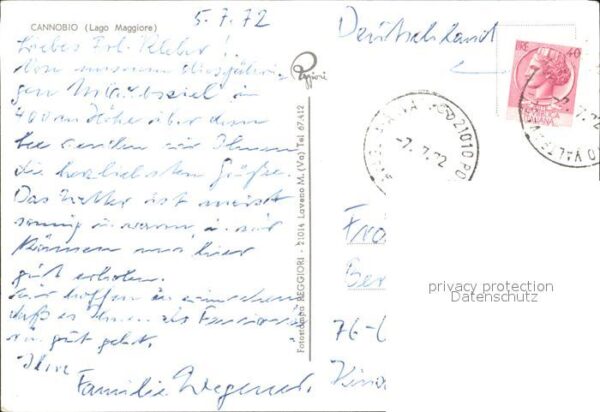 CANNOBIO (Lago Maggiore)
5.7.72
Liebes Frl. Kleber!
Von unserem diesjähri-
gen Urlaubsziel in
400 m Höhe über dem
See senden wir Ihnen
die herzlichsten Grüße.
Das Wetter ist meist
sonnig u. warm, u. wir
können uns hier
gut erholen.
Wir hoffen
daß es Ihnen als
gut geht.
Ihre
Familie Wegener.
Reggiori
Fotostampa REGGIORI - 21014 Laveno M. (Va) Tel. 67.412
Deutschland
LIRE 40
21010 PO
-7.7.72
Fr
Ber
76-6
Kin
privacy protection
Datenschutz